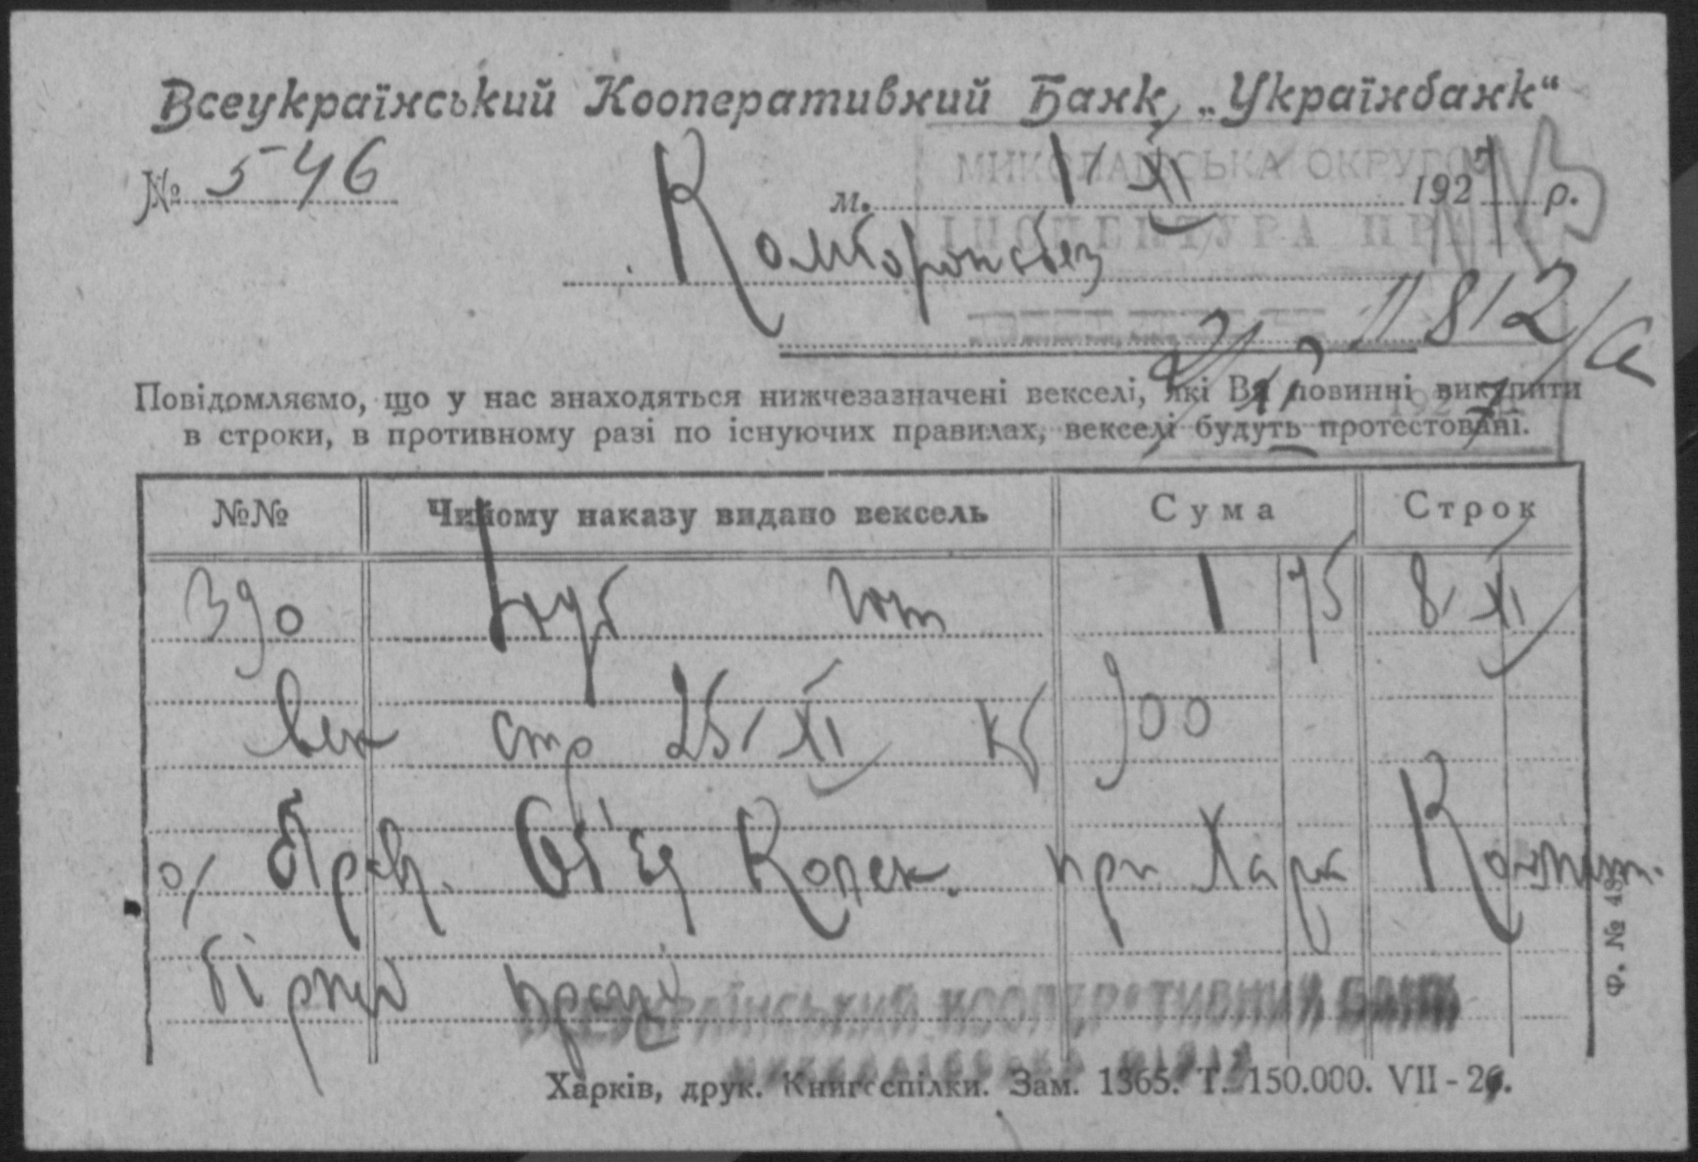 Всеукраїнський Кооперативний Банк „Українбанк“
№ 546
м. 1/XI 1927 р.
МИКОЛАЇВСЬКА ОКРУГОВ
ІНСПЕКТУРА ПРАЦІ
Комборонсбез
11812
21/XI 7
192
Повідомляємо, що у нас знаходяться нижчезазначені векселі, які Ви повинні викупити
в строки, в противному разі по існуючих правилах, векселі будуть протестовані.
№№ Чийому наказу видано вексель Сума Строк
390 1 75 8/XI
век стр 25/XI 900
Об'єд Колек. при Харк
біржі праці
ВСЕУКРАЇНСЬКИЙ КООПЕРАТИВНИЙ БАНК
Ф. № 48
Харків, друк. Книгоспілки. Зам. 1365. Т. 150.000. VII - 26.